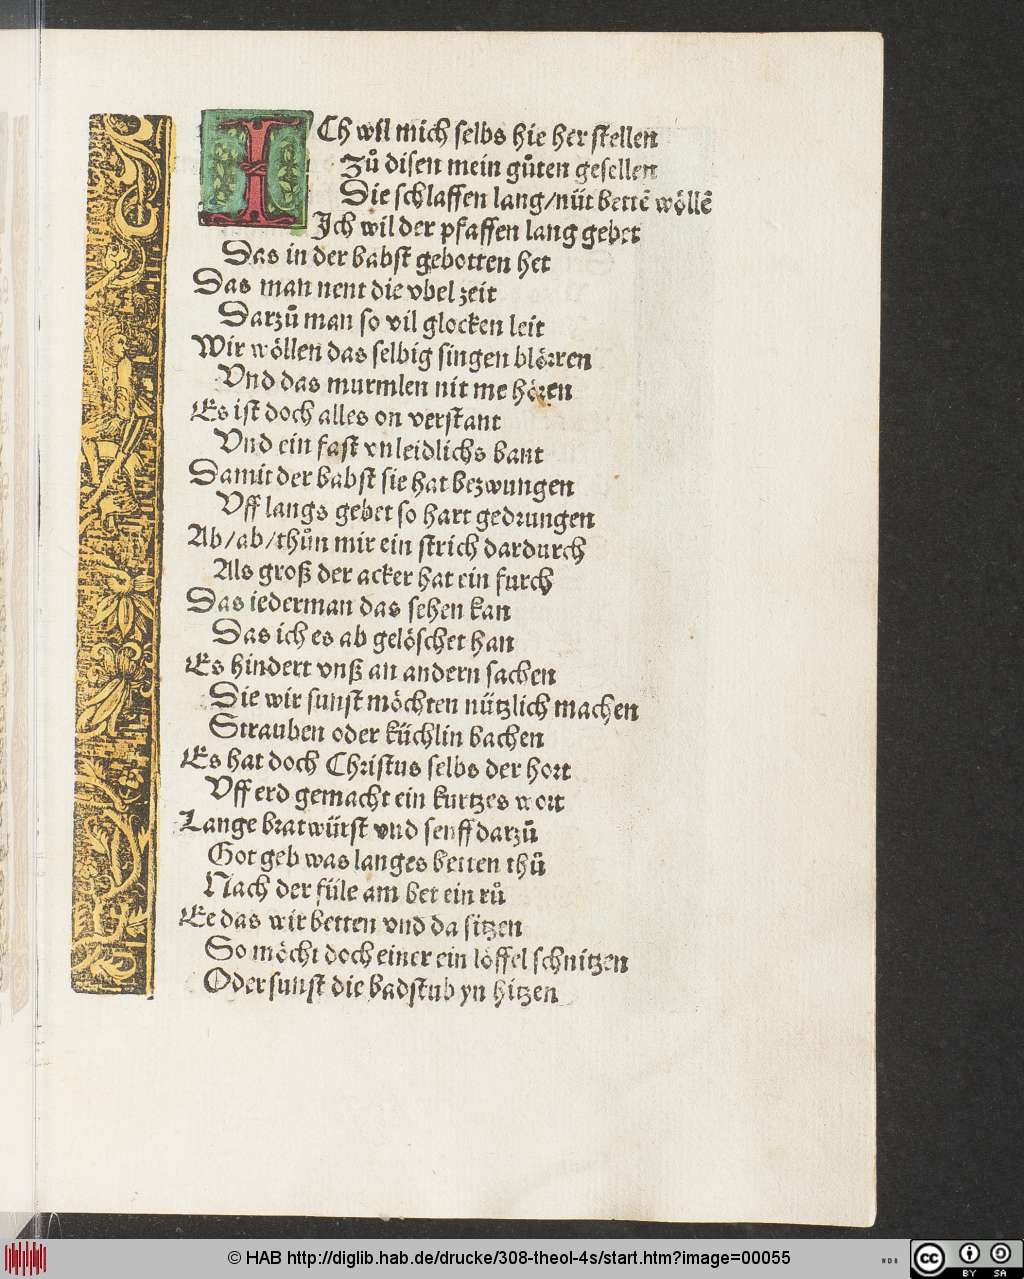 ICh wil mich selbs hie her stellen
Zů disen mein gůten gesellen
Die schlaffen lang/nüt bettē wöllē
Ich wil der pfaffen lang gebet
Das in der babst gebotten het
Das man nent die vbel zeit
Darzů man so vil glocken leit
Wir wöllen das selbig singen blörren
Vnd das murmlen nit me hören
Es ist doch alles on verstant
Vnd ein fast vnleidlichs bant
Damit der babst sie hat bezwungen
Vff langs gebet so hart gedrungen
Ab/ab/thůn mir ein strich dardurch
Als groß der acker hat ein furch
Das iederman das sehen kan
Das ich es ab gelöschet han
Es hindert vnß an andern sachen
Die wir sunst möchten nützlich machen
Strauben oder küchlin bachen
Es hat doch Christus selbs der hort
Vff erd gemacht ein kurtzes wort
Lange bratwürst vnd senff darzů
Got geb was langes betten thů
Nach der füle am bet ein rů
Ee das wir betten vnd da sitzen
So möcht doch einer ein löffel schnitzen
Oder sunst die badstub yn hitzen
© HAB http://diglib.hab.de/drucke/308-theol-4s/start.htm?image=00055
WDB
cc BY SA